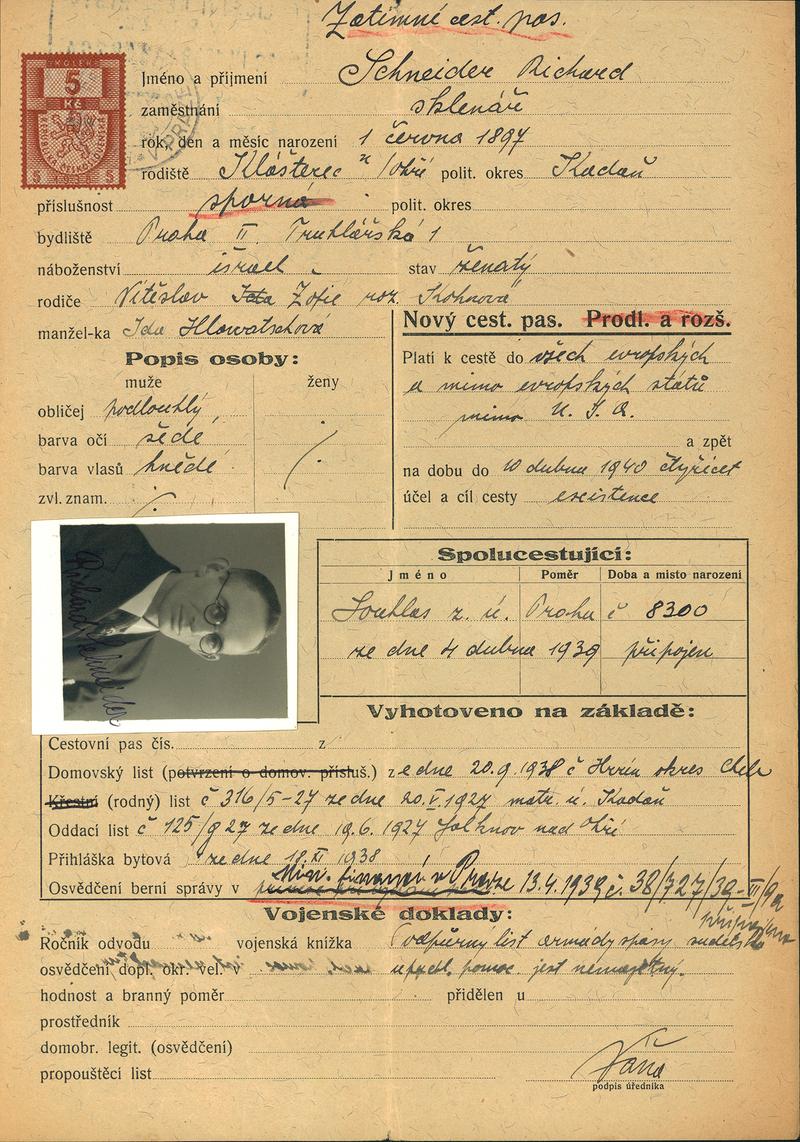 Zatímní cest. pas.
KOLEK
5
Kč
5 5
Jméno a příjmení Schneider Richard
zaměstnání sklenář
rok, den a měsíc narození 1 června 1897
rodiště Klášterec n/Ohří polit. okres Kadaň
příslušnost sporná polit. okres
bydliště Praha II. Truhlářská 1
náboženství israel. stav ženatý
rodiče Vítěslav Ida Žofie roz. Kohnová
manžel-ka Ida Hlawatschová
Nový cest. pas. Prodl. a rozš.
Popis osoby:
muže ženy
obličej podlouhlý
barva očí šedé
barva vlasů hnědé
zvl. znam.
Platí k cestě do všech evropských
a mimo evropských států
mimo U. S. A.
a zpět
na dobu do 10 dubna 1940 čtyřicet
účel a cíl cesty existence
Richard Schneider
Spolucestující:
Jméno Poměr Doba a místo narození
Souhlas z. ú. Praha č 8300
ze dne 4 dubna 1939 připojen
Vyhotoveno na základě:
Cestovní pas čís. z
Domovský list (potvrzení o domov. přísluš.) ze dne 20.9.1938 č okres Cheb
Křestní (rodný) list č 316/5-27 ze dne 20.V.1927 matr. ú. Kadaň
Oddací list č 125/927 ze dne 19.6.1927 Falknov nad Ohří
Přihláška bytová ze dne 18.XI 1938
Osvědčení berní správy v Min. financí v Praze 13.4.1939 č. 38/727/39-III/9a
připojeno
Vojenské doklady:
Ročník odvodu vojenská knížka Podpůrný list armády spásy
osvědčení dopl. okr. vel. v pomoc. jest nemajetný.
hodnost a branný poměr přidělen u
prostředník
domobr. legit. (osvědčení)
propouštěcí list
Váňa
podpis úředníka